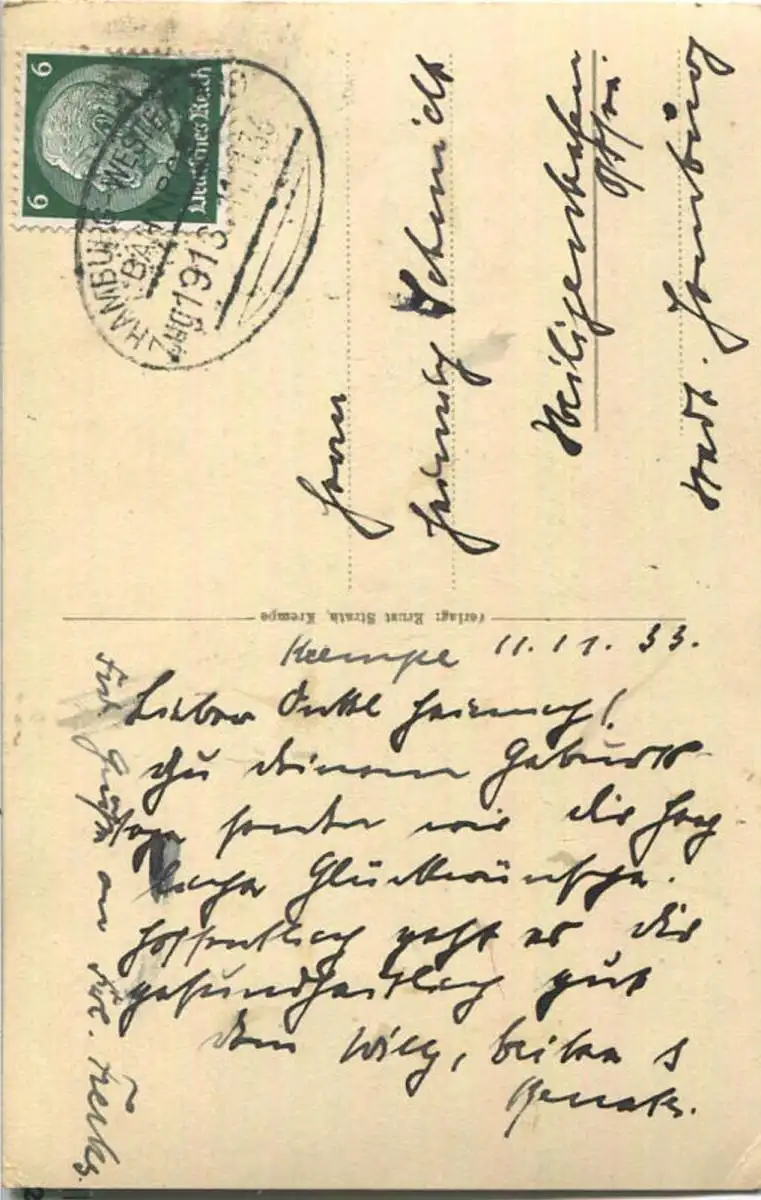 6 6
Deutsches Reich
HAMBURG-WESTER
BAHNPOST
ZUG 1913
Herrn
Heinrich Schmidt
Heiligenhafen
Ostsee
Stadt. Hamburg
Verlag: Ernst Strath, Krempe
Krempe 11.11.33.
Lieber Onkel Heinrich!
Zu deinem Geburts-
tage senden wir dir herz
liche Glückwünsche.
Hoffentlich geht es dir
gesundheitlich gut
dein Willy,
Grüße an